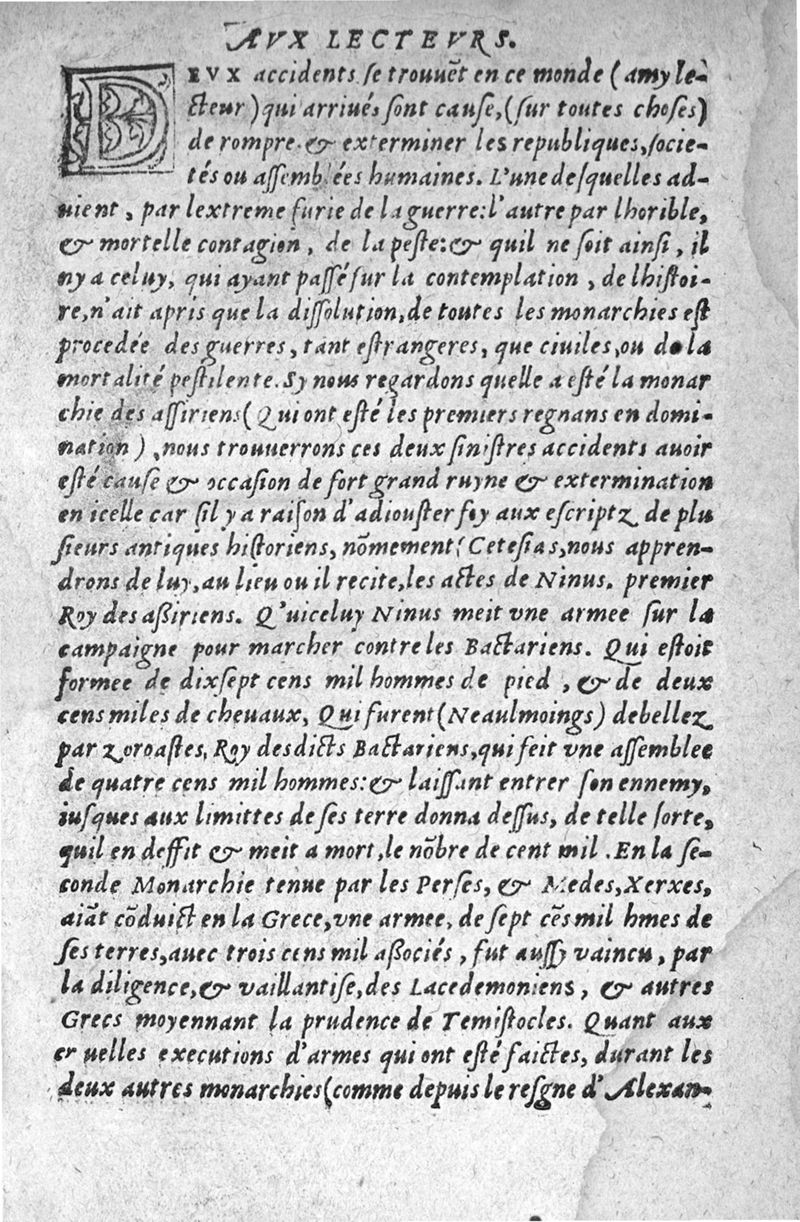 AVX LECTEVRS.
DEVX accidents se trouuẽt en ce monde (amy le-
cteur) qui arriués sont cause, (sur toutes choses)
de rompre & exterminer les republiques, socie-
tés ou assemblées humaines. L'une desquelles ad-
uient, par lextreme furie de la guerre: l'autre par lhorible,
& mortelle contagion, de la peste: & quil ne soit ainsi, il
ny a celuy, qui ayant passé sur la contemplation, de lhistoi-
re, n'ait apris que la dissolution, de toutes les monarchies est
procedée des guerres, tant estrangeres, que ciuiles, ou de la
mortalité pestilente. Sy nous regardons quelle a esté la monar
chie des assiriens (Qui ont esté les premiers regnans en domi-
nation), nous trouuerrons ces deux sinistres accidents auoir
esté cause & occasion de fort grand ruyne & extermination
en icelle car sil y a raison d'adiouster foy aux escriptz de plu
sieurs antiques historiens, nõmement Cetesias, nous appren-
drons de luy, au lieu ou il recite, les actes de Ninus. premier
Roy des aßiriens. Q'uiceluy Ninus meit vne armee sur la
campaigne pour marcher contre les Bactariens. Qui estoit
formee de dixsept cens mil hommes de pied, & de deux
cens miles de cheuaux, Qui furent (Neaulmoings) debellez
par Zoroastes, Roy desdicts Bactariens, qui feit vne assemblee
de quatre cens mil hommes: & laissant entrer son ennemy,
iusques aux limittes de ses terre donna dessus, de telle sorte,
quil en deffit & meit a mort, le nõbre de cent mil. En la se-
conde Monarchie tenue par les Perses, & Medes, Xerxes,
aiãt cõduict en la Grece, vne armee, de sept cẽs mil hmes de
ses terres, auec trois cens mil aßociés, fut aussy vaincu, par
la diligence, & vaillantise, des Lacedemoniens, & autres
Grecs moyennant la prudence de Temistocles. Quant aux
cr uelles executions d'armes qui ont esté faictes, durant les
deux autres monarchies (comme depuis le resgne d'Alexan-